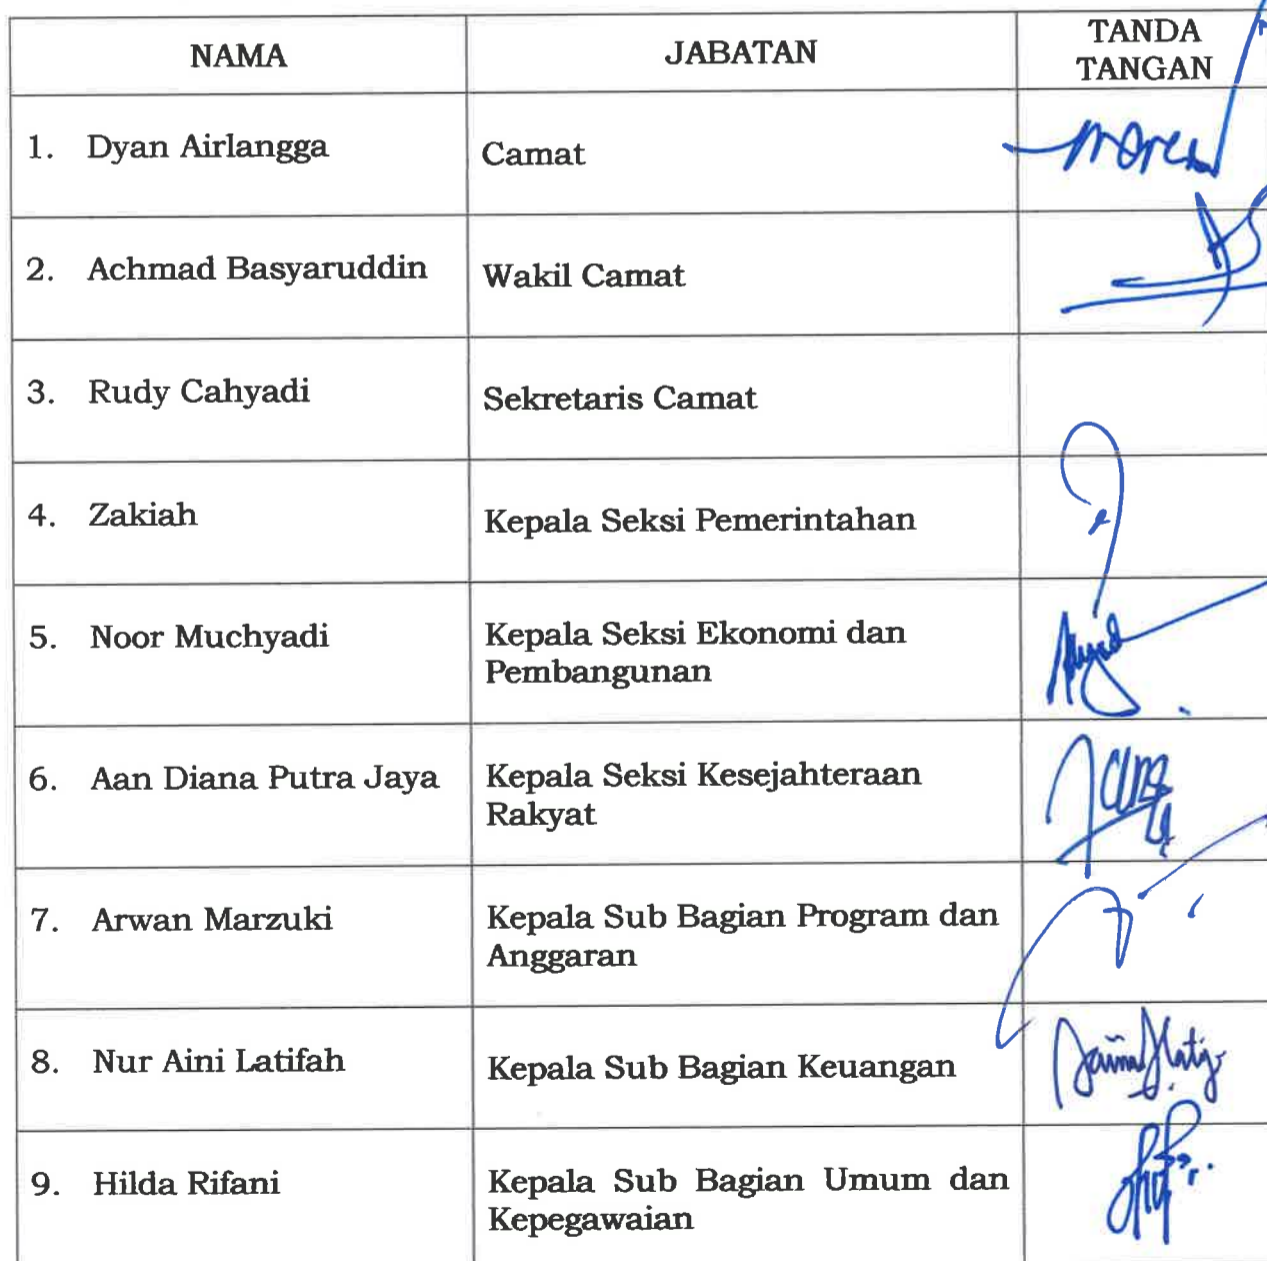 NAMA JABATAN TANDA
TANGAN
1. Dyan Airlangga Camat
2. Achmad Basyaruddin Wakil Camat
3. Rudy Cahyadi Sekretaris Camat
4. Zakiah Kepala Seksi Pemerintahan
5. Noor Muchyadi Kepala Seksi Ekonomi dan
Pembangunan
6. Aan Diana Putra Jaya Kepala Seksi Kesejahteraan
Rakyat
7. Arwan Marzuki Kepala Sub Bagian Program dan
Anggaran
8. Nur Aini Latifah Kepala Sub Bagian Keuangan
9. Hilda Rifani Kepala Sub Bagian Umum dan
Kepegawaian